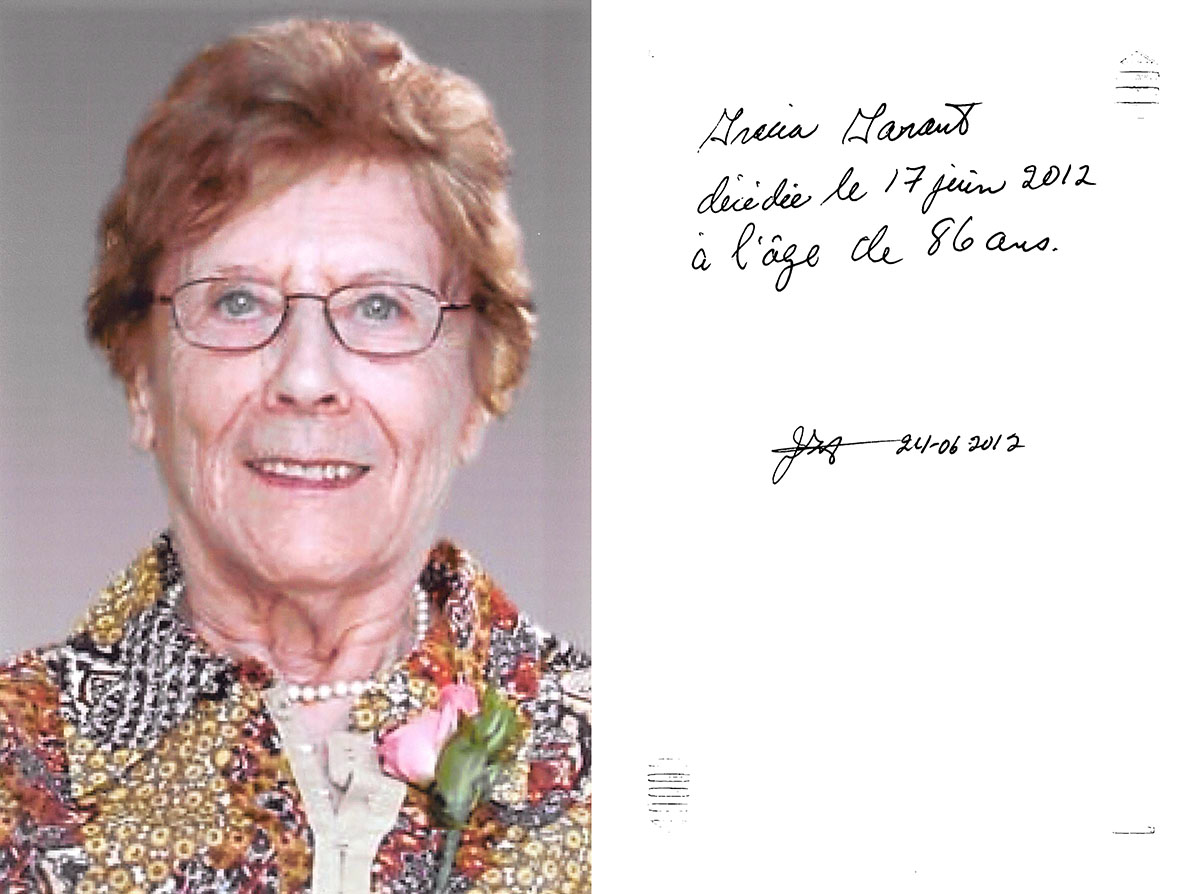 Gracia Parant
décédée le 17 juin 2012
à l'âge de 86 ans.
24-06-2012